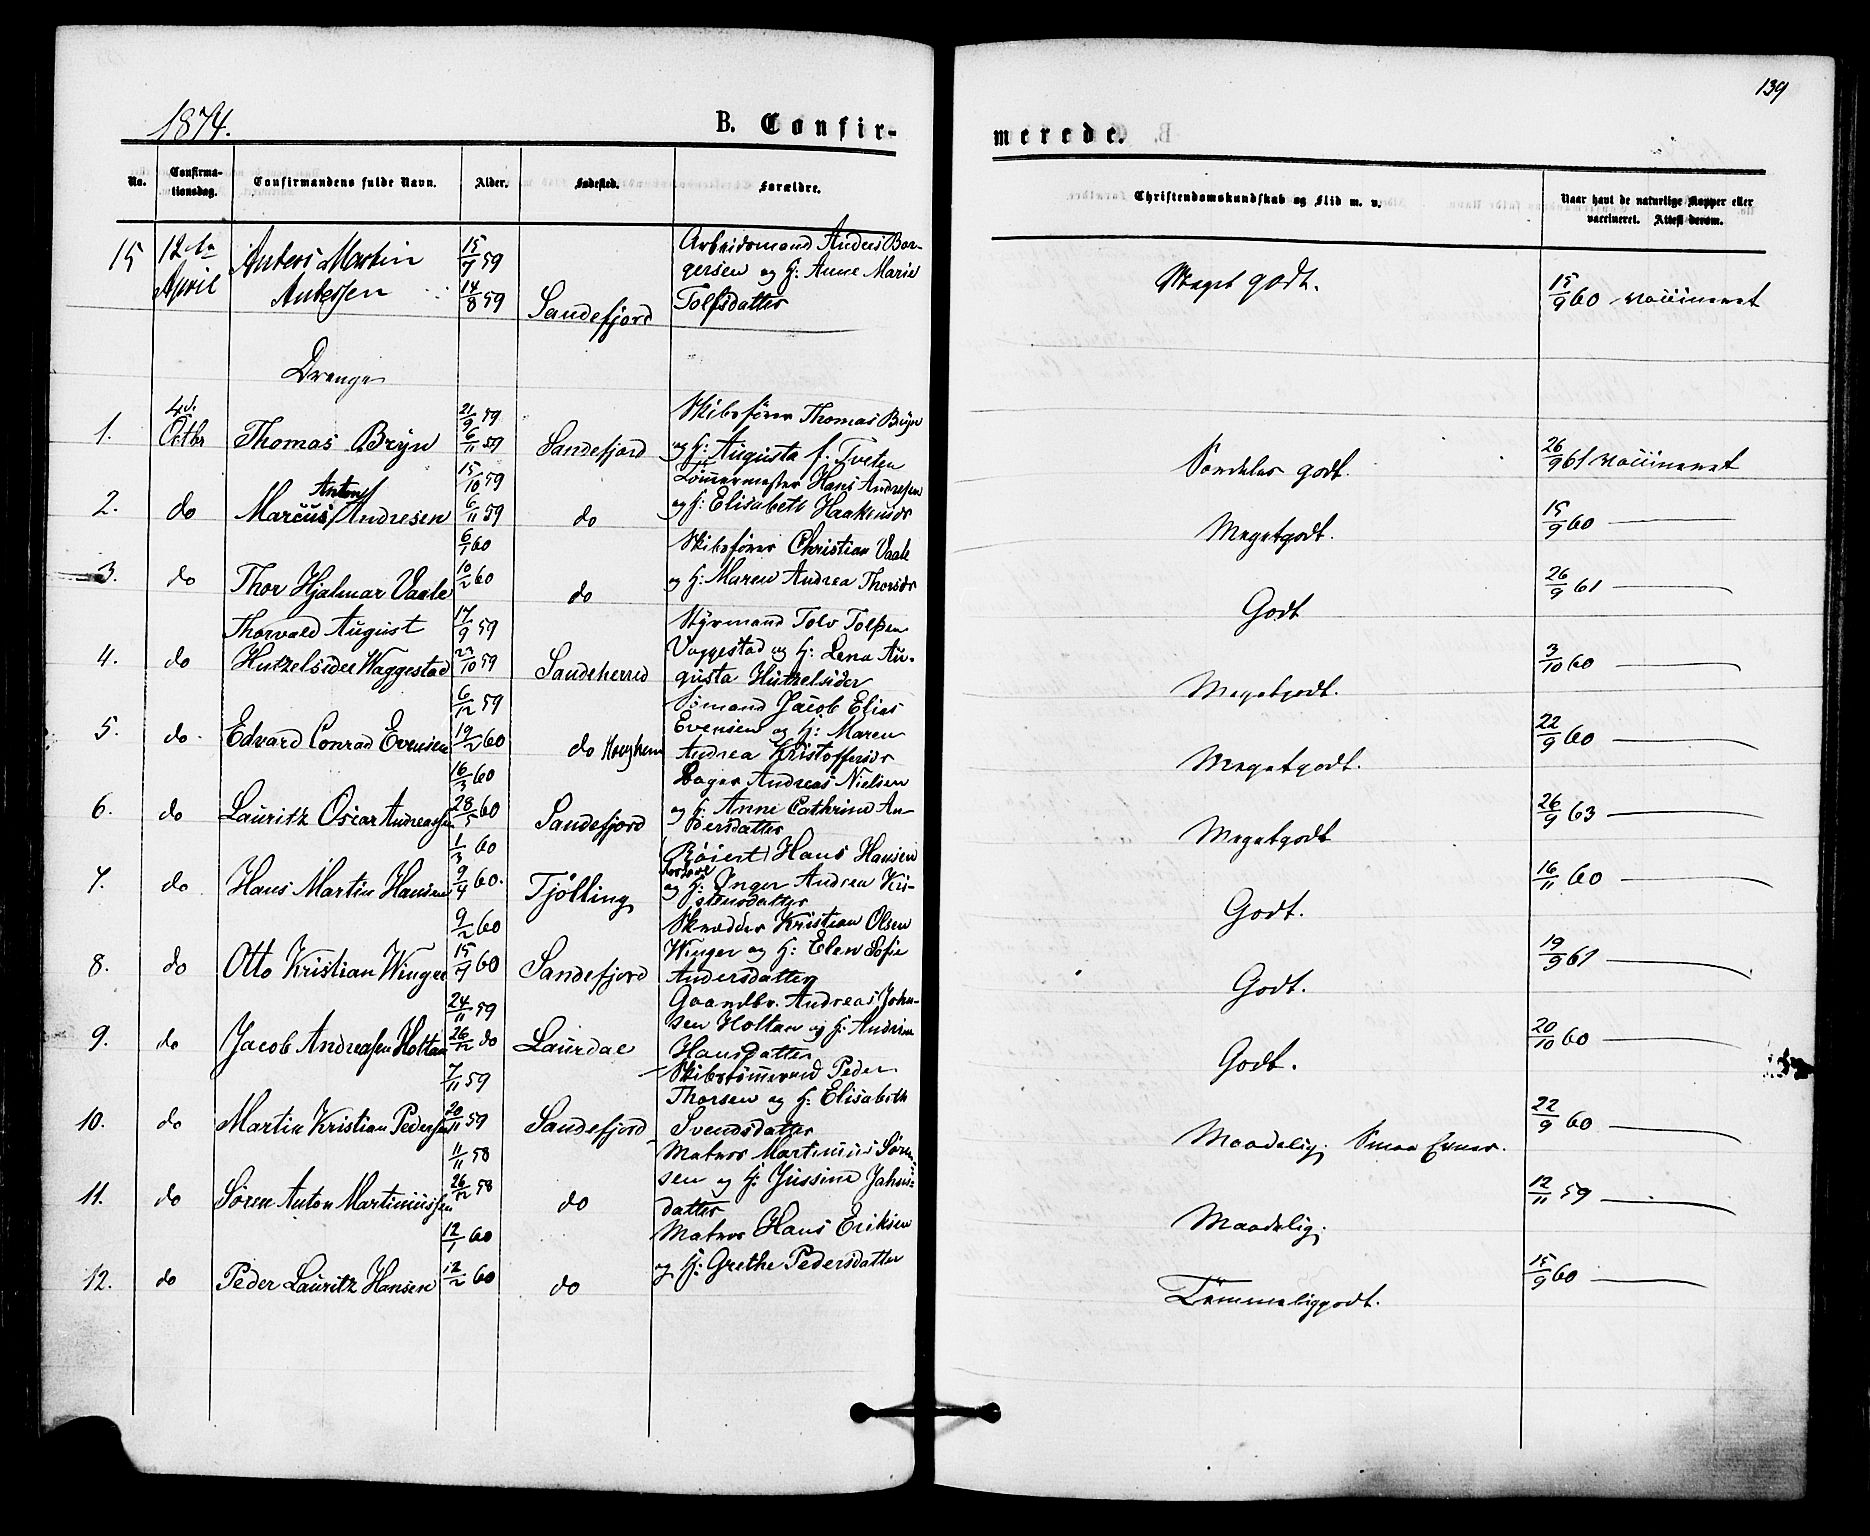 139
1874.
B. Confir-
merede.
No.
Confirma-
tionsdag.
Confirmandens fulde Navn.
Alder.
Fødested.
Forældre.
Christendomskundskab og Flid m. v.
Naar havt de naturlige Kopper eller
vaccineret. Attest derom.
15 12te Anders Martin 15/7 59 Arbeidsmand Anders Bor-
April Andersen 14/8 59 Sandefjord gersen og H: Anne Marie
Tolfsdatter Meget godt. 15/9 60 vaccineret
Drenge
1. 4d. Octbr Thomas Bryn 21/9 59 6/11 59 Sandefjord Skibsfører Thomas Bryn
og H: Augusta f. Tveten Særdeles godt. 26/9 61 vaccineret
2. do Marcus Anton Andresen 15/10 59 6/11 59 do Tømmermester Hans Andresen
og H: Elisabeth Haakensdr Megetgodt. 15/9 60
3. do Thor Hjalmar Vaale 6/1 60 10/2 60 do Skibsfører Christian Vaale
og H: Maren Andrea Thorsdr Godt 26/9 61
4. do Thorvald August 17/9 59 Styrmand Tolv Tolfsen
Hutzelsider Waggestad 23/10 59 Sandeherred Vaggestad og H: Lena Au-
gusta Hutzelsider Megetgodt. 3/10 60
5. do. Edvard Conrad Evensen 6/12 59 19/2 60 do Haughem Sømand Jacob Elias
Evensen og H: Maren
Andrea Kristoffersdr Megetgodt. 22/9 60
6. do Lauritz Oscar Andreassen 16/3 60 28/5 60 Sandefjord Bager Andreas Nielsen
og H: Anne Cathrine An-
dersdatter Megetgodt 26/9 63
7. do Hans Martin Hansen 1/3 60 9/4 60. Tjølling Hans Hansen
og H: Inger Andrea Kri-
stensdatter Godt. 16/11 60
8. do Otto Kristian Winger 9/2 60 15/4 60 Sandefjord Skrædder Kristian Olsen
Winger og H: Elen Sofie
Andersdatter Godt. 19/9 61
9. do Jacob Andreasen Holtan 24/11 59 26/12 do Laurdal Gaardbr. Andreas John-
sen Holtan og H: Andrine
Hansdatter Godt. 20/10 60
10. do Martin Kristian Pedersen 7/11 59 20/11 59 Sandefjord Skibstømmermd Peder
Thorsen og H: Elisabeth
Svendsdatter Maadelig; Smaa Evner. 22/9 60
11. do Søren Anton Martiniussen 11/11 58 26/12 58 do Matros Martinius Søren-
sen og H: Jussine Jahns-
datter Maadelig; 12/11 59
12. do Peder Lauritz Hansen 12/1 60 12/2 60 do Matros Hans Eriksen
og H: Grethe Pedersdatter Temmeliggodt. 15/9 60